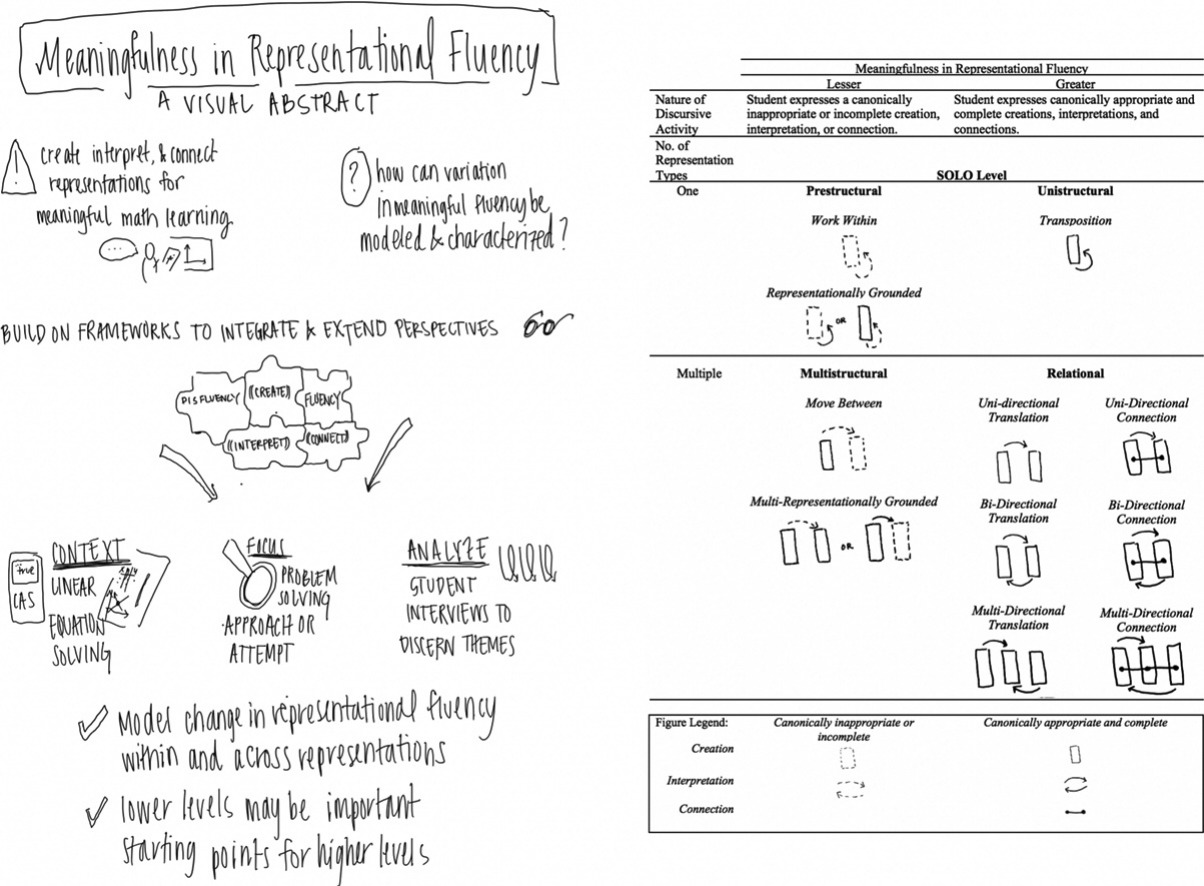 Meaningfulness in Representational Fluency
A VISUAL ABSTRACT
!
create interpret, & connect
representations for
meaningful math learning
...
?
how can variation
in meaningful fluency be
modeled & characterized?
BUILD ON FRAMEWORKS TO INTEGRATE & EXTEND PERSPECTIVES
DISFLUENCY
((CREATE))
FLUENCY
((INTERPRET))
((CONNECT))
true
CAS
CONTEXT
LINEAR
EQUATION
SOLVING
FOCUS
PROBLEM
SOLVING
APPROACH OR
ATTEMPT
ANALYZE
STUDENT
INTERVIEWS TO
DISCERN THEMES
Model change in representational fluency
within and across representations
lower levels may be important
starting points for higher levels
Meaningfulness in Representational Fluency
Lesser Greater
Nature of Discursive Activity
Student expresses a canonically
inappropriate or incomplete creation,
interpretation, or connection.
Student expresses canonically appropriate and
complete creations, interpretations, and
connections.
No. of
Representation
Types
SOLO Level
One
Prestructural
Unistructural
Work Within
Transposition
Representationally Grounded
OR
Multiple
Multistructural
Relational
Move Between
Uni-directional
Translation
Uni-Directional
Connection
Multi-Representationally Grounded
OR
Bi-Directional
Translation
Bi-Directional
Connection
Multi-Directional
Translation
Multi-Directional
Connection
Figure Legend:
Canonically inappropriate or
incomplete
Canonically appropriate and complete
Creation
Interpretation
Connection